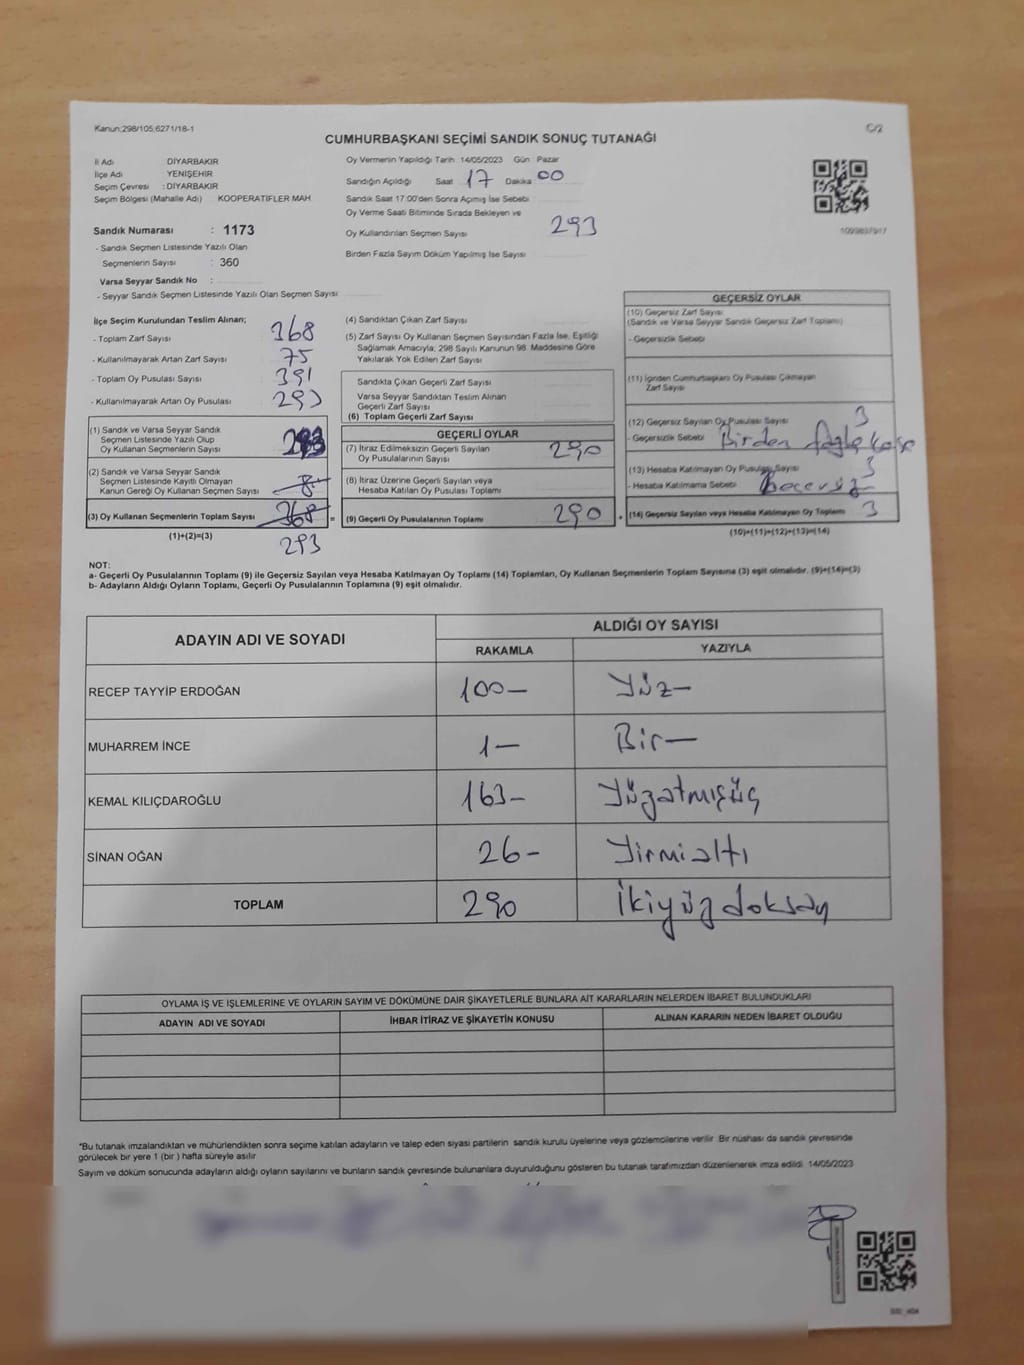 Kanun;298/105;6271/18-1
C/2
CUMHURBAŞKANI SEÇİMİ SANDIK SONUÇ TUTANAĞI
İl Adı DİYARBAKIR
İlçe Adı YENİŞEHİR
Seçim Çevresi : DİYARBAKIR
Seçim Bölgesi (Mahalle Adı) KOOPERATİFLER MAH.
Oy Vermenin Yapıldığı Tarih 14/05/2023 Gün Pazar
Sandığın Açıldığı Saat 17 Dakika 00
Sandık Saat 17.00'den Sonra Açımış İse Sebebi
Oy Verme Saati Bitiminde Sırada Bekleyen ve
Oy Kullandırılan Seçmen Sayısı 293
Birden Fazla Sayım Döküm Yapılmış İse Sayısı
Sandık Numarası : 1173
- Sandık Seçmen Listesinde Yazılı Olan
Seçmenlerin Sayısı : 360
Varsa Seyyar Sandık No :
- Seyyar Sandık Seçmen Listesinde Yazılı Olan Seçmen Sayısı
İlçe Seçim Kurulundan Teslim Alınan;
- Toplam Zarf Sayısı : 368
- Kullanılmayarak Artan Zarf Sayısı : 75
- Toplam Oy Pusulası Sayısı : 391
- Kullanılmayarak Artan Oy Pusulası : 293
(1) Sandık ve Varsa Seyyar Sandık
Seçmen Listesinde Yazılı Olup
Oy Kullanan Seçmenlerin Sayısı 293
(2) Sandık ve Varsa Seyyar Sandık
Seçmen Listesinde Kayıtlı Olmayan
Kanun Gereği Oy Kullanan Seçmen Sayısı 8
(3) Oy Kullanan Seçmenlerin Toplam Sayısı 368 =
(1)+(2)=(3) 293
(4) Sandıktan Çıkan Zarf Sayısı
(5) Zarf Sayısı Oy Kullanan Seçmen Sayısından Fazla İse, Eşitliği
Sağlamak Amacıyla; 298 Sayılı Kanunun 98. Maddesine Göre
Yakılarak Yok Edilen Zarf Sayısı
Sandıkta Çıkan Geçerli Zarf Sayısı
Varsa Seyyar Sandıktan Teslim Alınan
Geçerli Zarf Sayısı
(6) Toplam Geçerli Zarf Sayısı
GEÇERLİ OYLAR
(7) İtiraz Edilmeksizin Geçerli Sayılan
Oy Pusulalarının Sayısı 290
(8) İtiraz Üzerine Geçerli Sayılan veya
Hesaba Katılan Oy Pusulası Toplamı
(9) Geçerli Oy Pusulalarının Toplamı 290 +
GEÇERSİZ OYLAR
(10) Geçersiz Zarf Sayısı
(Sandık ve Varsa Seyyar Sandık Geçersiz Zarf Toplamı)
- Geçersizlik Sebebi
(11) İçinden Cumhurbaşkanı Oy Pusulası Çıkmayan
Zarf Sayısı
(12) Geçersiz Sayılan Oy Pusulası Sayısı 3
- Geçersizlik Sebebi Birden
(13) Hesaba Katılmayan Oy Pusulası Sayısı 3
- Hesaba Katılmama Sebebi Geçersiz
(14) Geçersiz Sayılan veya Hesaba Katılmayan Oy Toplamı 3
(10)+(11)+(12)+(13)=(14)
NOT:
a- Geçerli Oy Pusulalarının Toplamı (9) ile Geçersiz Sayılan veya Hesaba Katılmayan Oy Toplamı (14) Toplamları, Oy Kullanan Seçmenlerin Toplam Sayısına (3) eşit olmalıdır. (9)+(14)=(3)
b- Adayların Aldığı Oyların Toplamı, Geçerli Oy Pusulalarının Toplamına (9) eşit olmalıdır.
ADAYIN ADI VE SOYADI ALDIĞI OY SAYISI
RAKAMLA YAZIYLA
RECEP TAYYİP ERDOĞAN 100 — Yüz —
MUHARREM İNCE 1 — Bir —
KEMAL KILIÇDAROĞLU 163 — Yüzatmışüç
SİNAN OĞAN 26 — Yirmialtı
TOPLAM 290 İkiyüzdoksan
OYLAMA İŞ VE İŞLEMLERİNE VE OYLARIN SAYIM VE DÖKÜMÜNE DAİR ŞİKAYETLERLE BUNLARA AİT KARARLARIN NELERDEN İBARET BULUNDUKLARI
ADAYIN ADI VE SOYADI İHBAR İTİRAZ VE ŞİKAYETİN KONUSU ALINAN KARARIN NEDEN İBARET OLDUĞU
*Bu tutanak imzalandıktan ve mühürlendikten sonra seçime katılan adayların ve talep eden siyasi partilerin sandık kurulu üyelerine veya gözlemcilerine verilir. Bir nüshası da sandık çevresinde
görülecek bir yere 1 (bir ) hafta süreyle asılır.
Sayım ve döküm sonucunda adayların aldığı oyların sayılarını ve bunların sandık çevresinde bulunanlara duyurulduğunu gösteren bu tutanak tarafımızdan düzenlenerek imza edildi. 14/05/2023